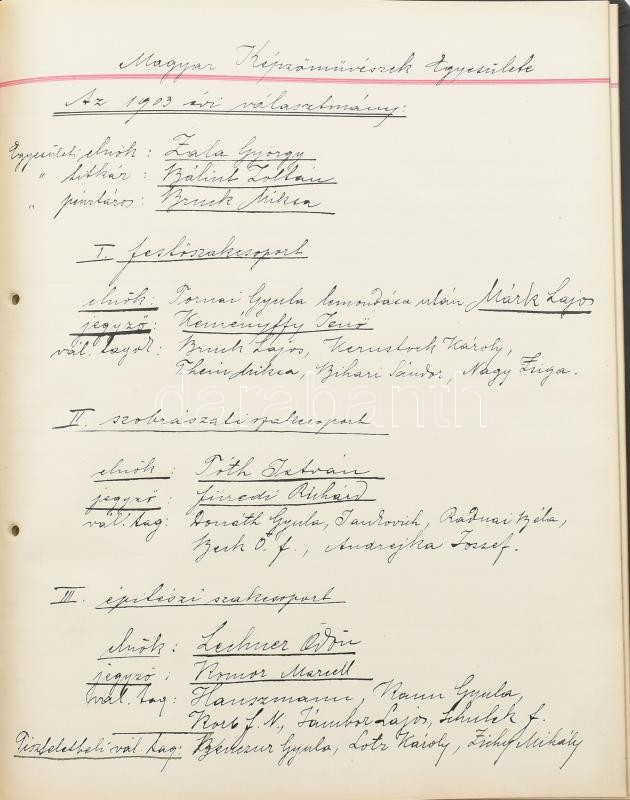 Magyar Képzőművészek Egyesülete
Az 1903 évi választmány:
Egyesületi elnök: Zala György
" titkár: Bálint Zoltán
" pénztáros: Bruck Miksa
I. festőszakcsoport
elnök: Tornai Gyula lemondása után Márk Lajos
jegyző: Keményffy Jenő
vál. tagok: Bruck Lajos, Kernstock Károly,
Thein Miksa, Bihari Sándor, Nagy Zsiga.
darabanth
II. szobrászati szakcsoport
elnök: Tóth István
jegyző: Füredi Richárd
vál. tag: Donáth Gyula, Jankovich, Radnai Béla,
Beck Ö. f., Andrejka József.
III. építészi szakcsoport
elnök: Lechner Ödön
jegyző: Komor Marcell
vál. tag: Hauszmann, Kann Gyula,
Korb f. N., Jámbor Lajos, Schulek f.
Tiszteletbeli vál. tag: Benczur Gyula, Lotz Károly, Zichy Mihály